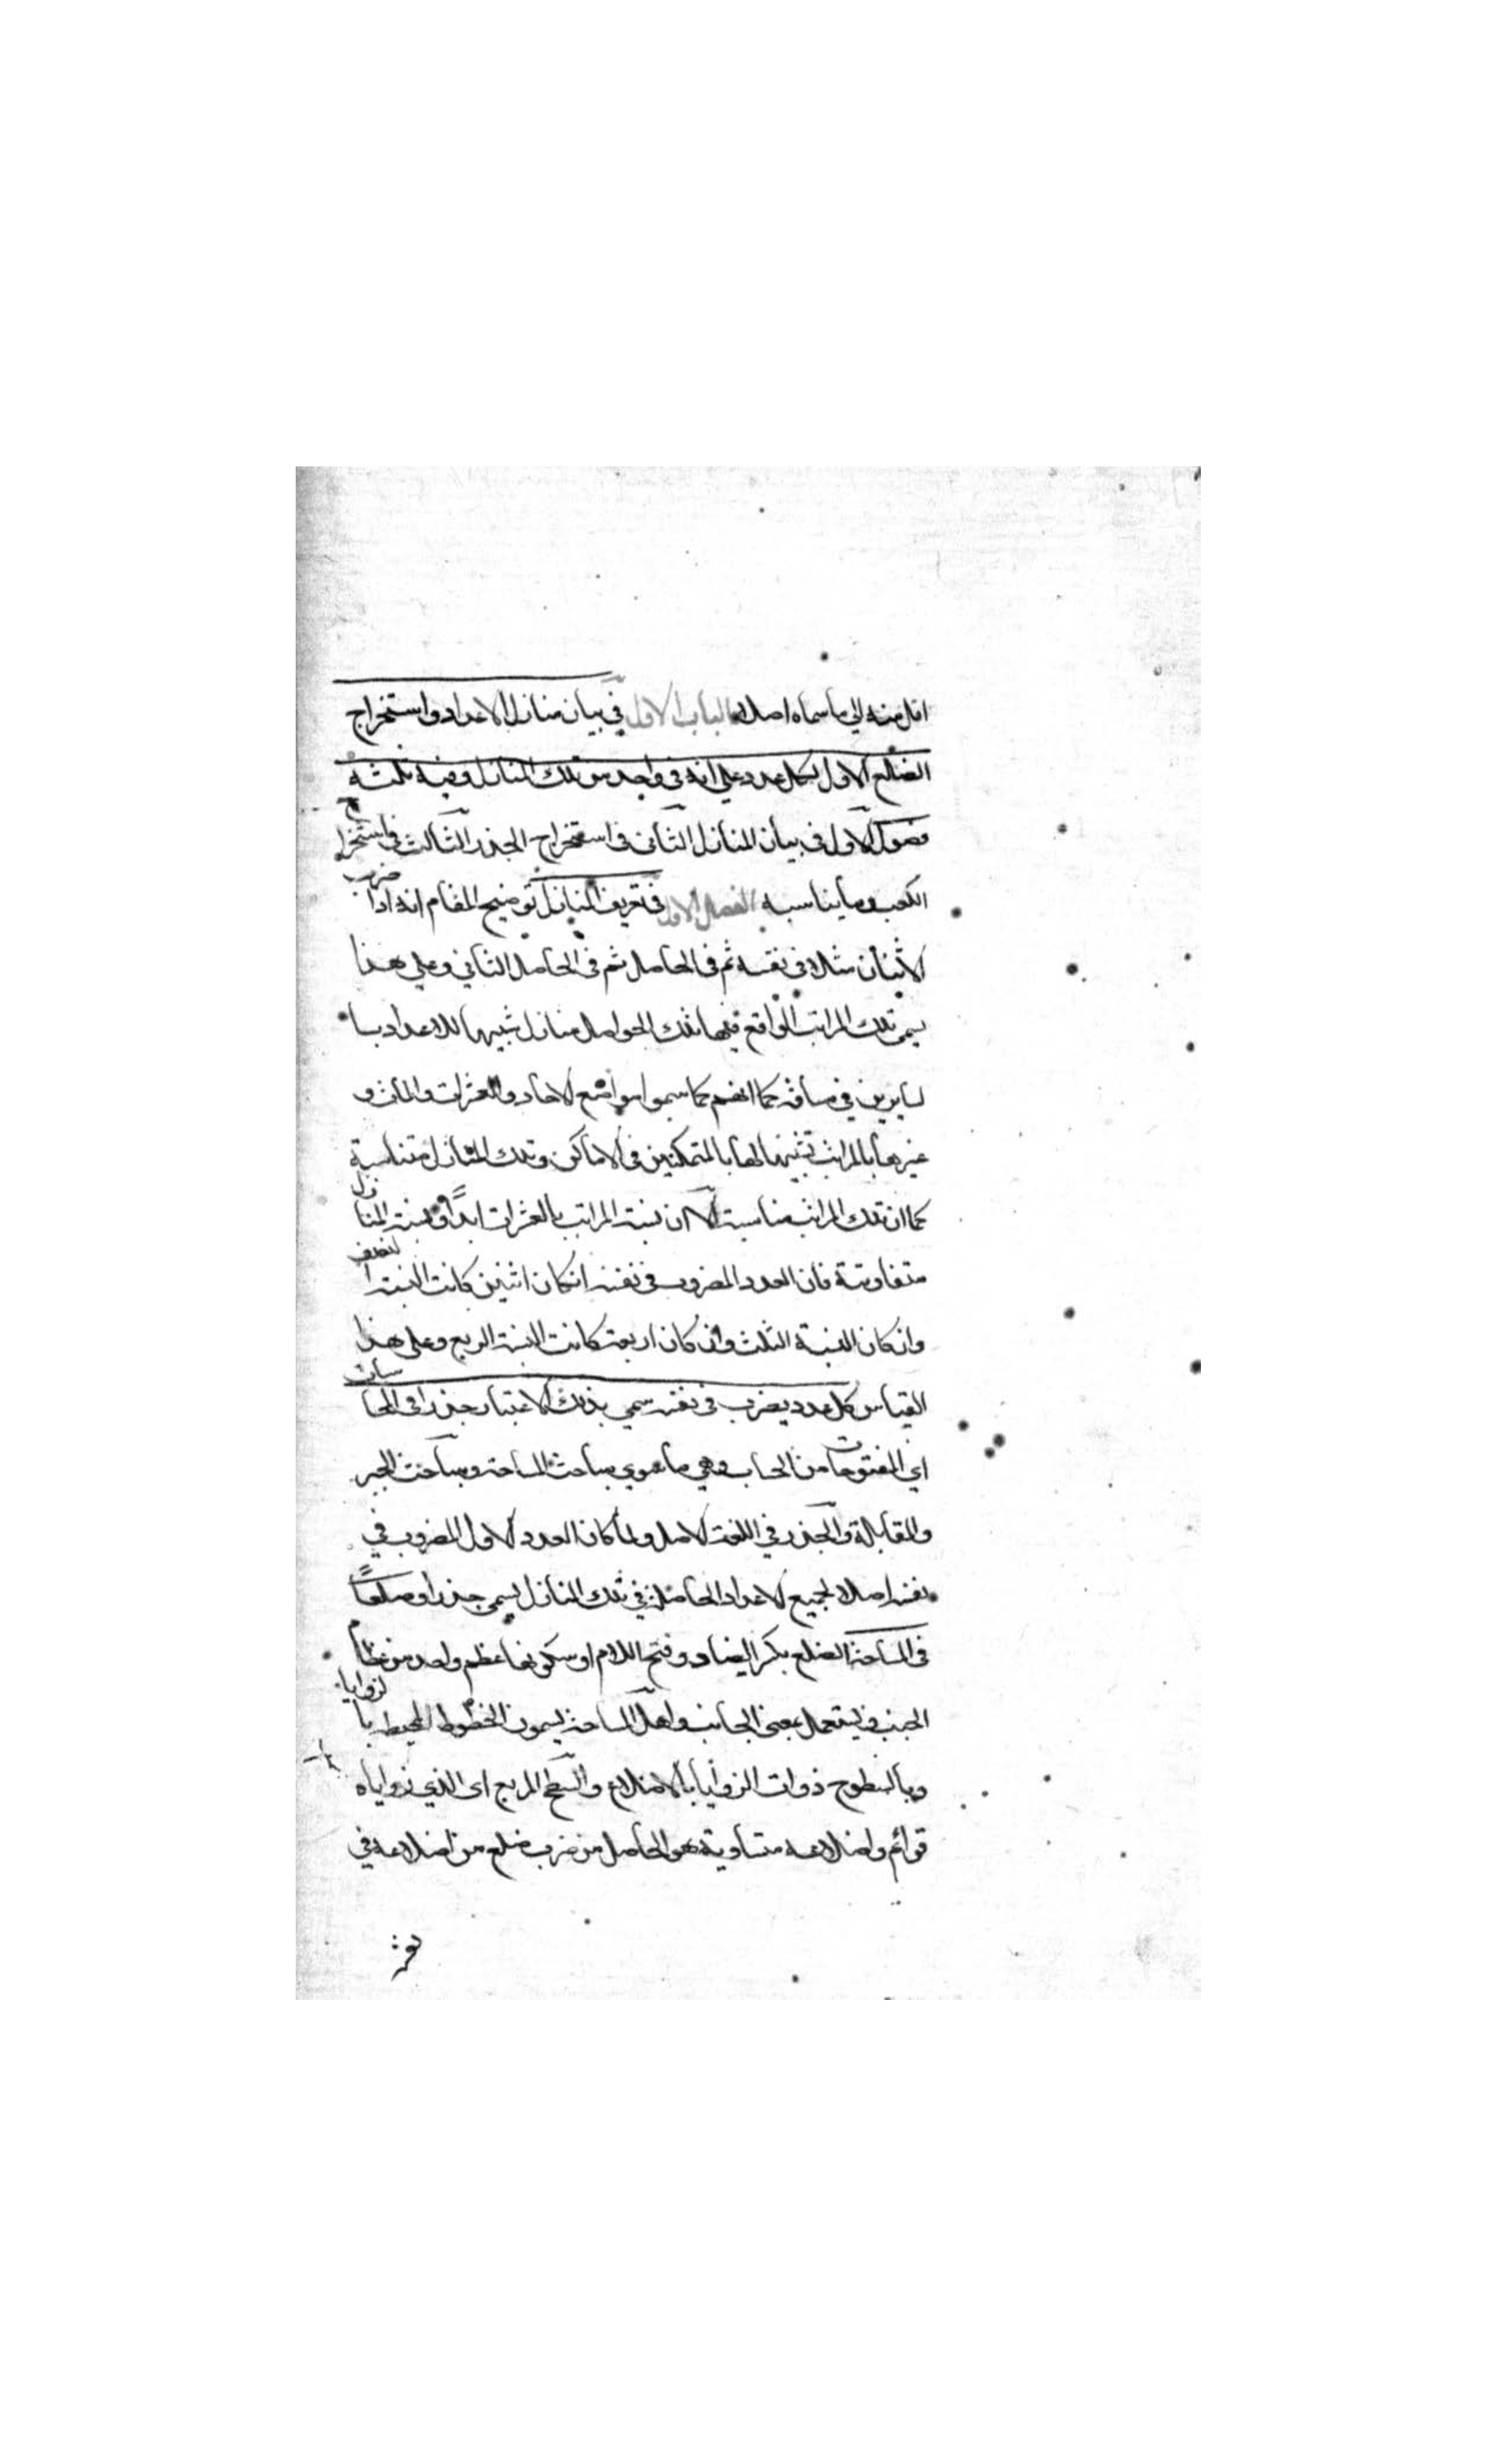 اقل منه الى ما سماه اصلا الباب الاول في بيان منازل الاعداد واستخراج
الضلع الاول لكل عدد على انه في واحد من تلك المنازل وفيه ثلثة
فصول الاول في بيان المنازل الثاني في استخراج الجذر الثالث في استخراج
الكعب وما يناسبه الفصل الاول في تعريف المنازل توضيح المقام انه اذا ضرب
الاثنان مثلا في نفسه ثم في الحاصل ثم في الحاصل الثاني وعلى هذا
يسمى تلك المراتب الواقع فيها تلك الحواصل منازل تشبيها للاعداد بسا
لسايرين في مسافة كما انهم كما سموا مواضع الاحاد والعشرات والمأت و
غيرها بالمراتب تشبيها لها بالمتمكنين في الاماكن وتلك المنازل متناسبة
كما ان تلك المراتب متناسبة الا ان نسبة المراتب بالعشرات ابدًا ونسبة المنازل
متفاوتة فان العدد المضروب في نفسه ان كان اثنين كانت النسبة النصف
وان كان النسبة الثلث وان كان اربعة كانت النسبة الربع وعلى هذا
القياس كل عدد يضرب في نفسه سمي بذلك الاعتبار جذرا في المحاسبات
اي المفتوحات من الحساب وهي ما سوى مباحث المساحة ومباحث الجبر
والمقابلة والجذر في اللغة الاصل ولما كان العدد الاول المضروب في
نفسه اصلا لجميع الاعداد الحاصلة في تلك المنازل يسمى جذرا وضلعًا
في المساحة الضلع بكسر الضاد وفتح اللام او سكونها عظم واحد من عظام
الجنب في يستعمل بمعنى الجانب واهل المساحة يسمون الخطوط المحيطة بالزوايا
وبالسطوح ذوات الزوايا بالاضلاع والسطح المربع اى الذي زواياه
قوائم واضلاعه متساوية هو الحاصل من ضرب ضلع من اضلاعه في